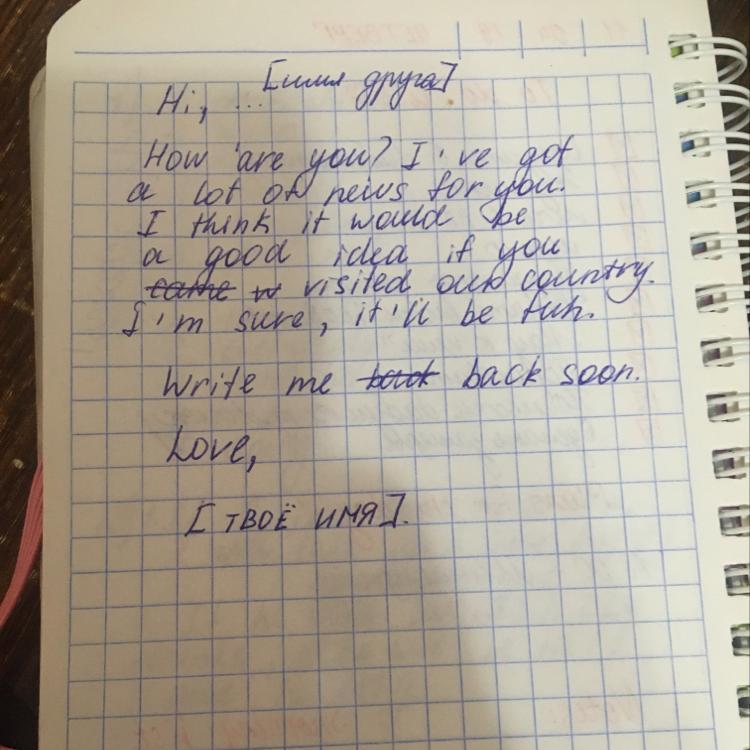 Hi, ... [имя друга]
How are you? I've got
a lot of news for you.
I think it would be
a good idea if you
came visited our country.
I'm sure, it'll be fun.
Write me back soon.
Love,
[ТВОЁ ИМЯ].